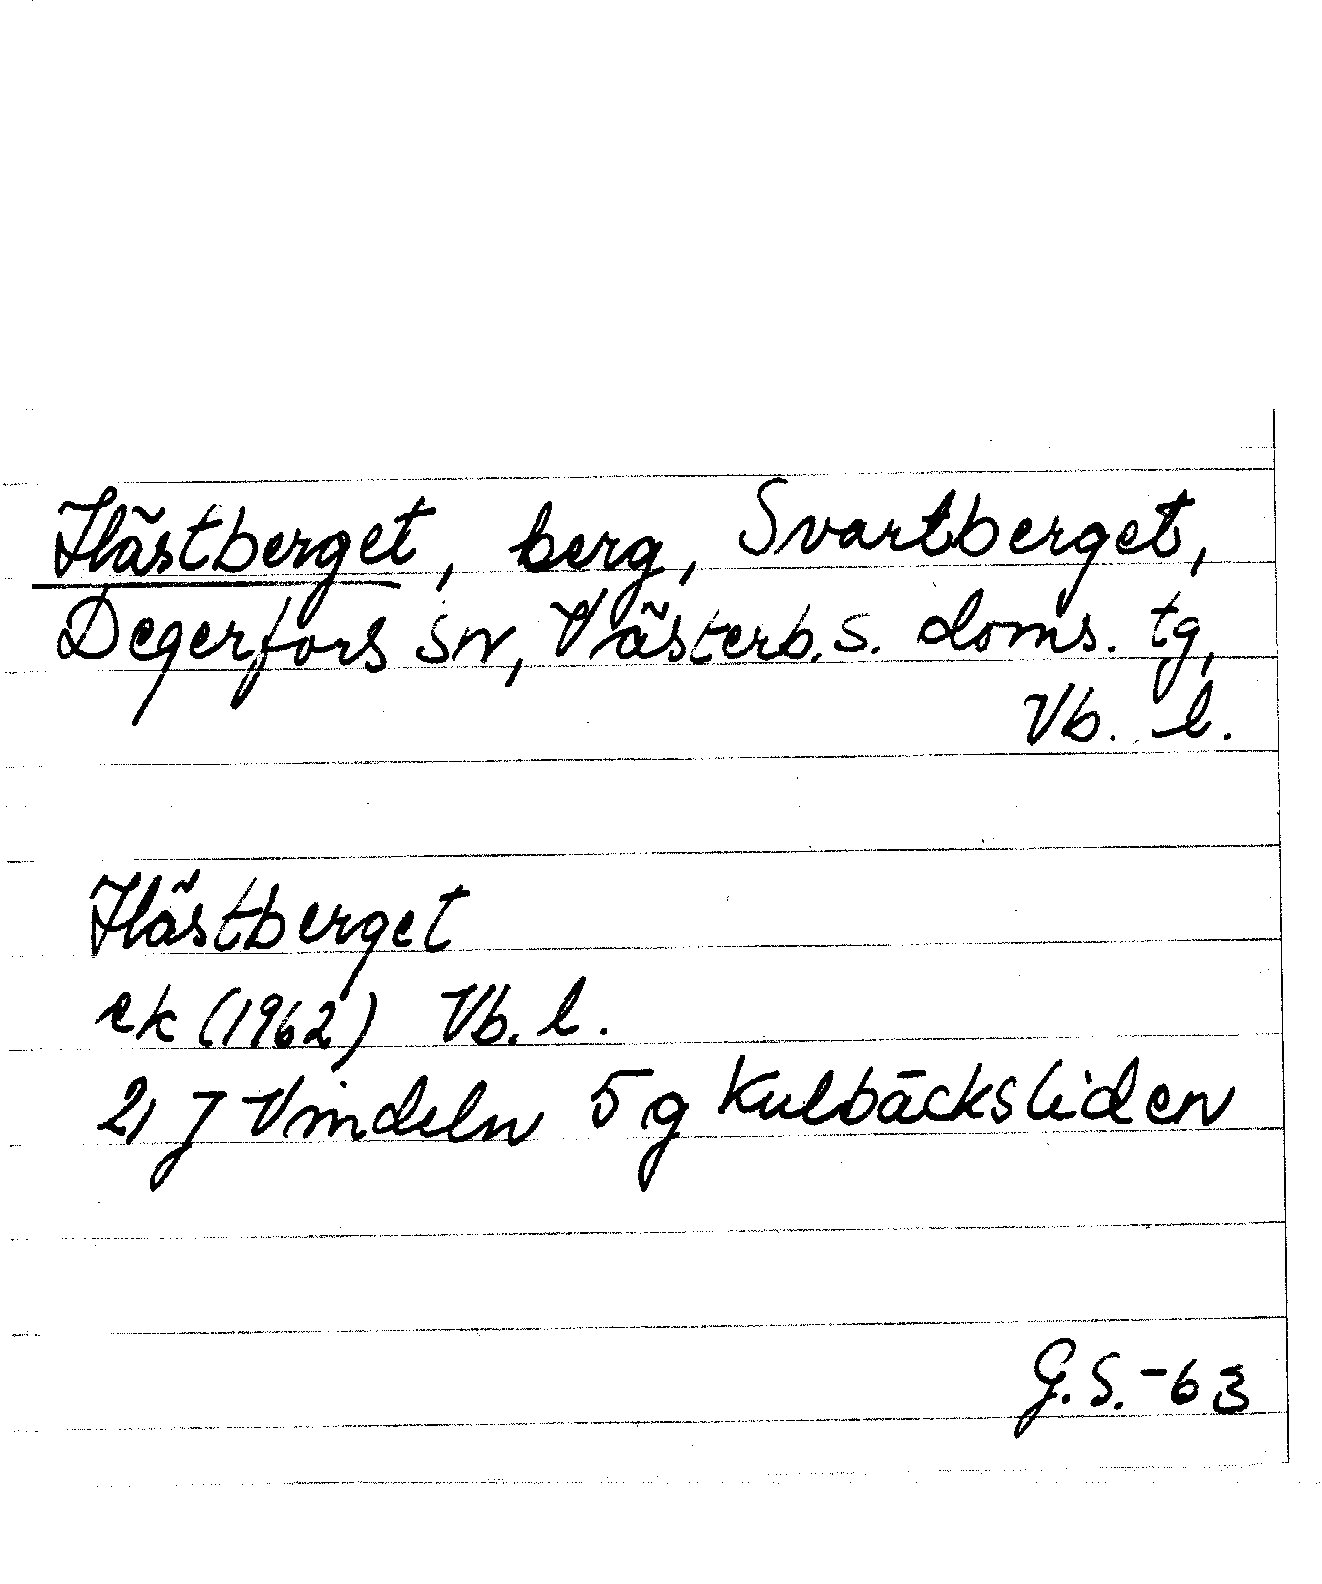 Hästberget, berg, Svartberget,
Degerfors sn, Västerb. s. doms. tg,
Vb. l.
Hästberget
ek (1962) Vb. l.
21 J Vindeln 5 g Kulbäcksliden
G.S.-63